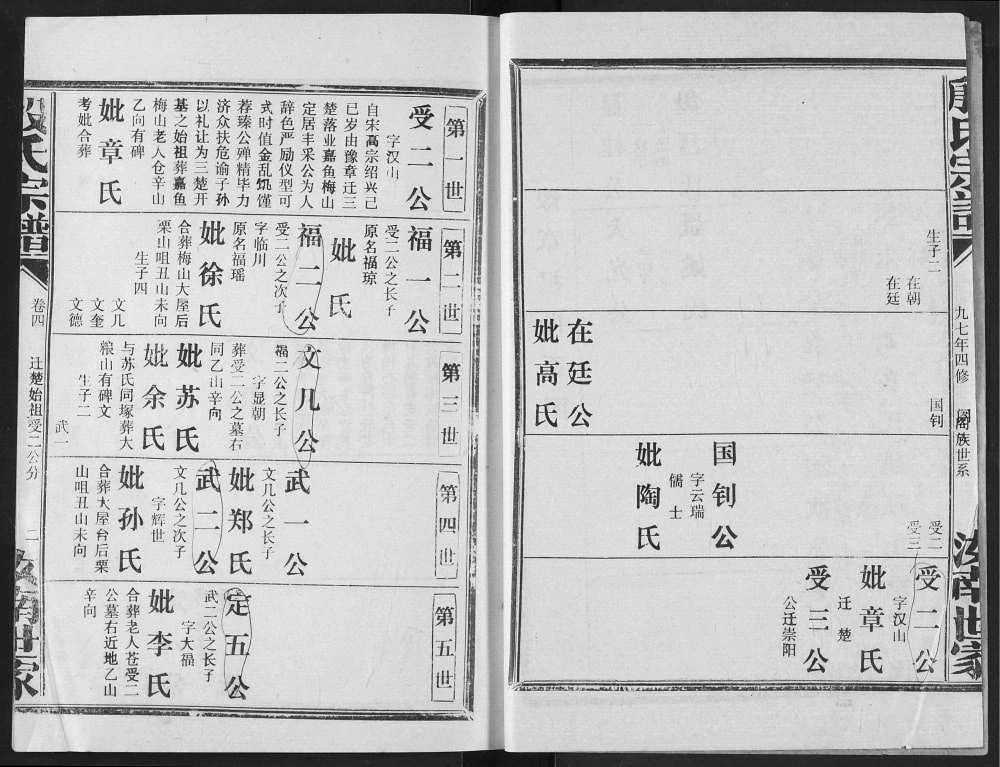 殷氏宗谱
九七年四修
阁族世系
汝南世家
生子二
在朝
在廷
在廷公
妣高氏
国钊
国钊公
字云瑞
儒士
妣陶氏
受二
受三
受二公
字汉山
妣章氏
迁楚
受三公
公迁崇阳
第一世
受二公
字汉山
自宋高宗绍兴己
巳岁由豫章迁三
楚落业嘉鱼梅山
定居丰采公为人
辞色严励仪型可
式时值金乱饥馑
荐臻公殚精毕力
济众扶危谕子孙
以礼让为三楚开
基之始祖葬嘉鱼
梅山老人仓辛山
乙向有碑
妣章氏
考妣合葬
第二世
福一公
受二公之长子
原名福琼
妣氏
福二公
受二公之次子
字临川
原名福瑶
妣徐氏
合葬梅山大屋后
栗山咀丑山未向
生子四
文几
文奎
文德
第三世
文几公
福二公之长子
字显朝
葬受二公之墓右
同乙山辛向
妣苏氏
妣余氏
与苏氏同塚葬大
粮山有碑文
生子二
武一
第四世
武一公
文几公之长子
妣郑氏
武二公
文几公之次子
字辉世
妣孙氏
合葬大屋台后栗
山咀丑山未向
第五世
定五公
武二公之长子
字大福
妣李氏
合葬老人苍受二
公墓右近地乙山
辛向
殷氏宗谱
卷四
迁楚始祖受二公分
二
汝南世家